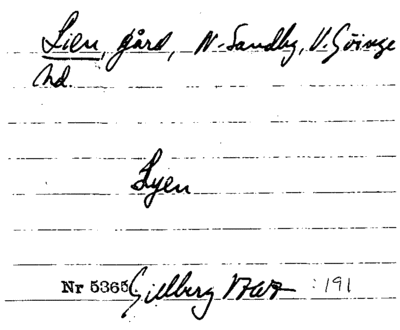 Lien, gård, N. Sandby, V. Göinge
hd.
Lyen
Nr 5365 Gillberg :191